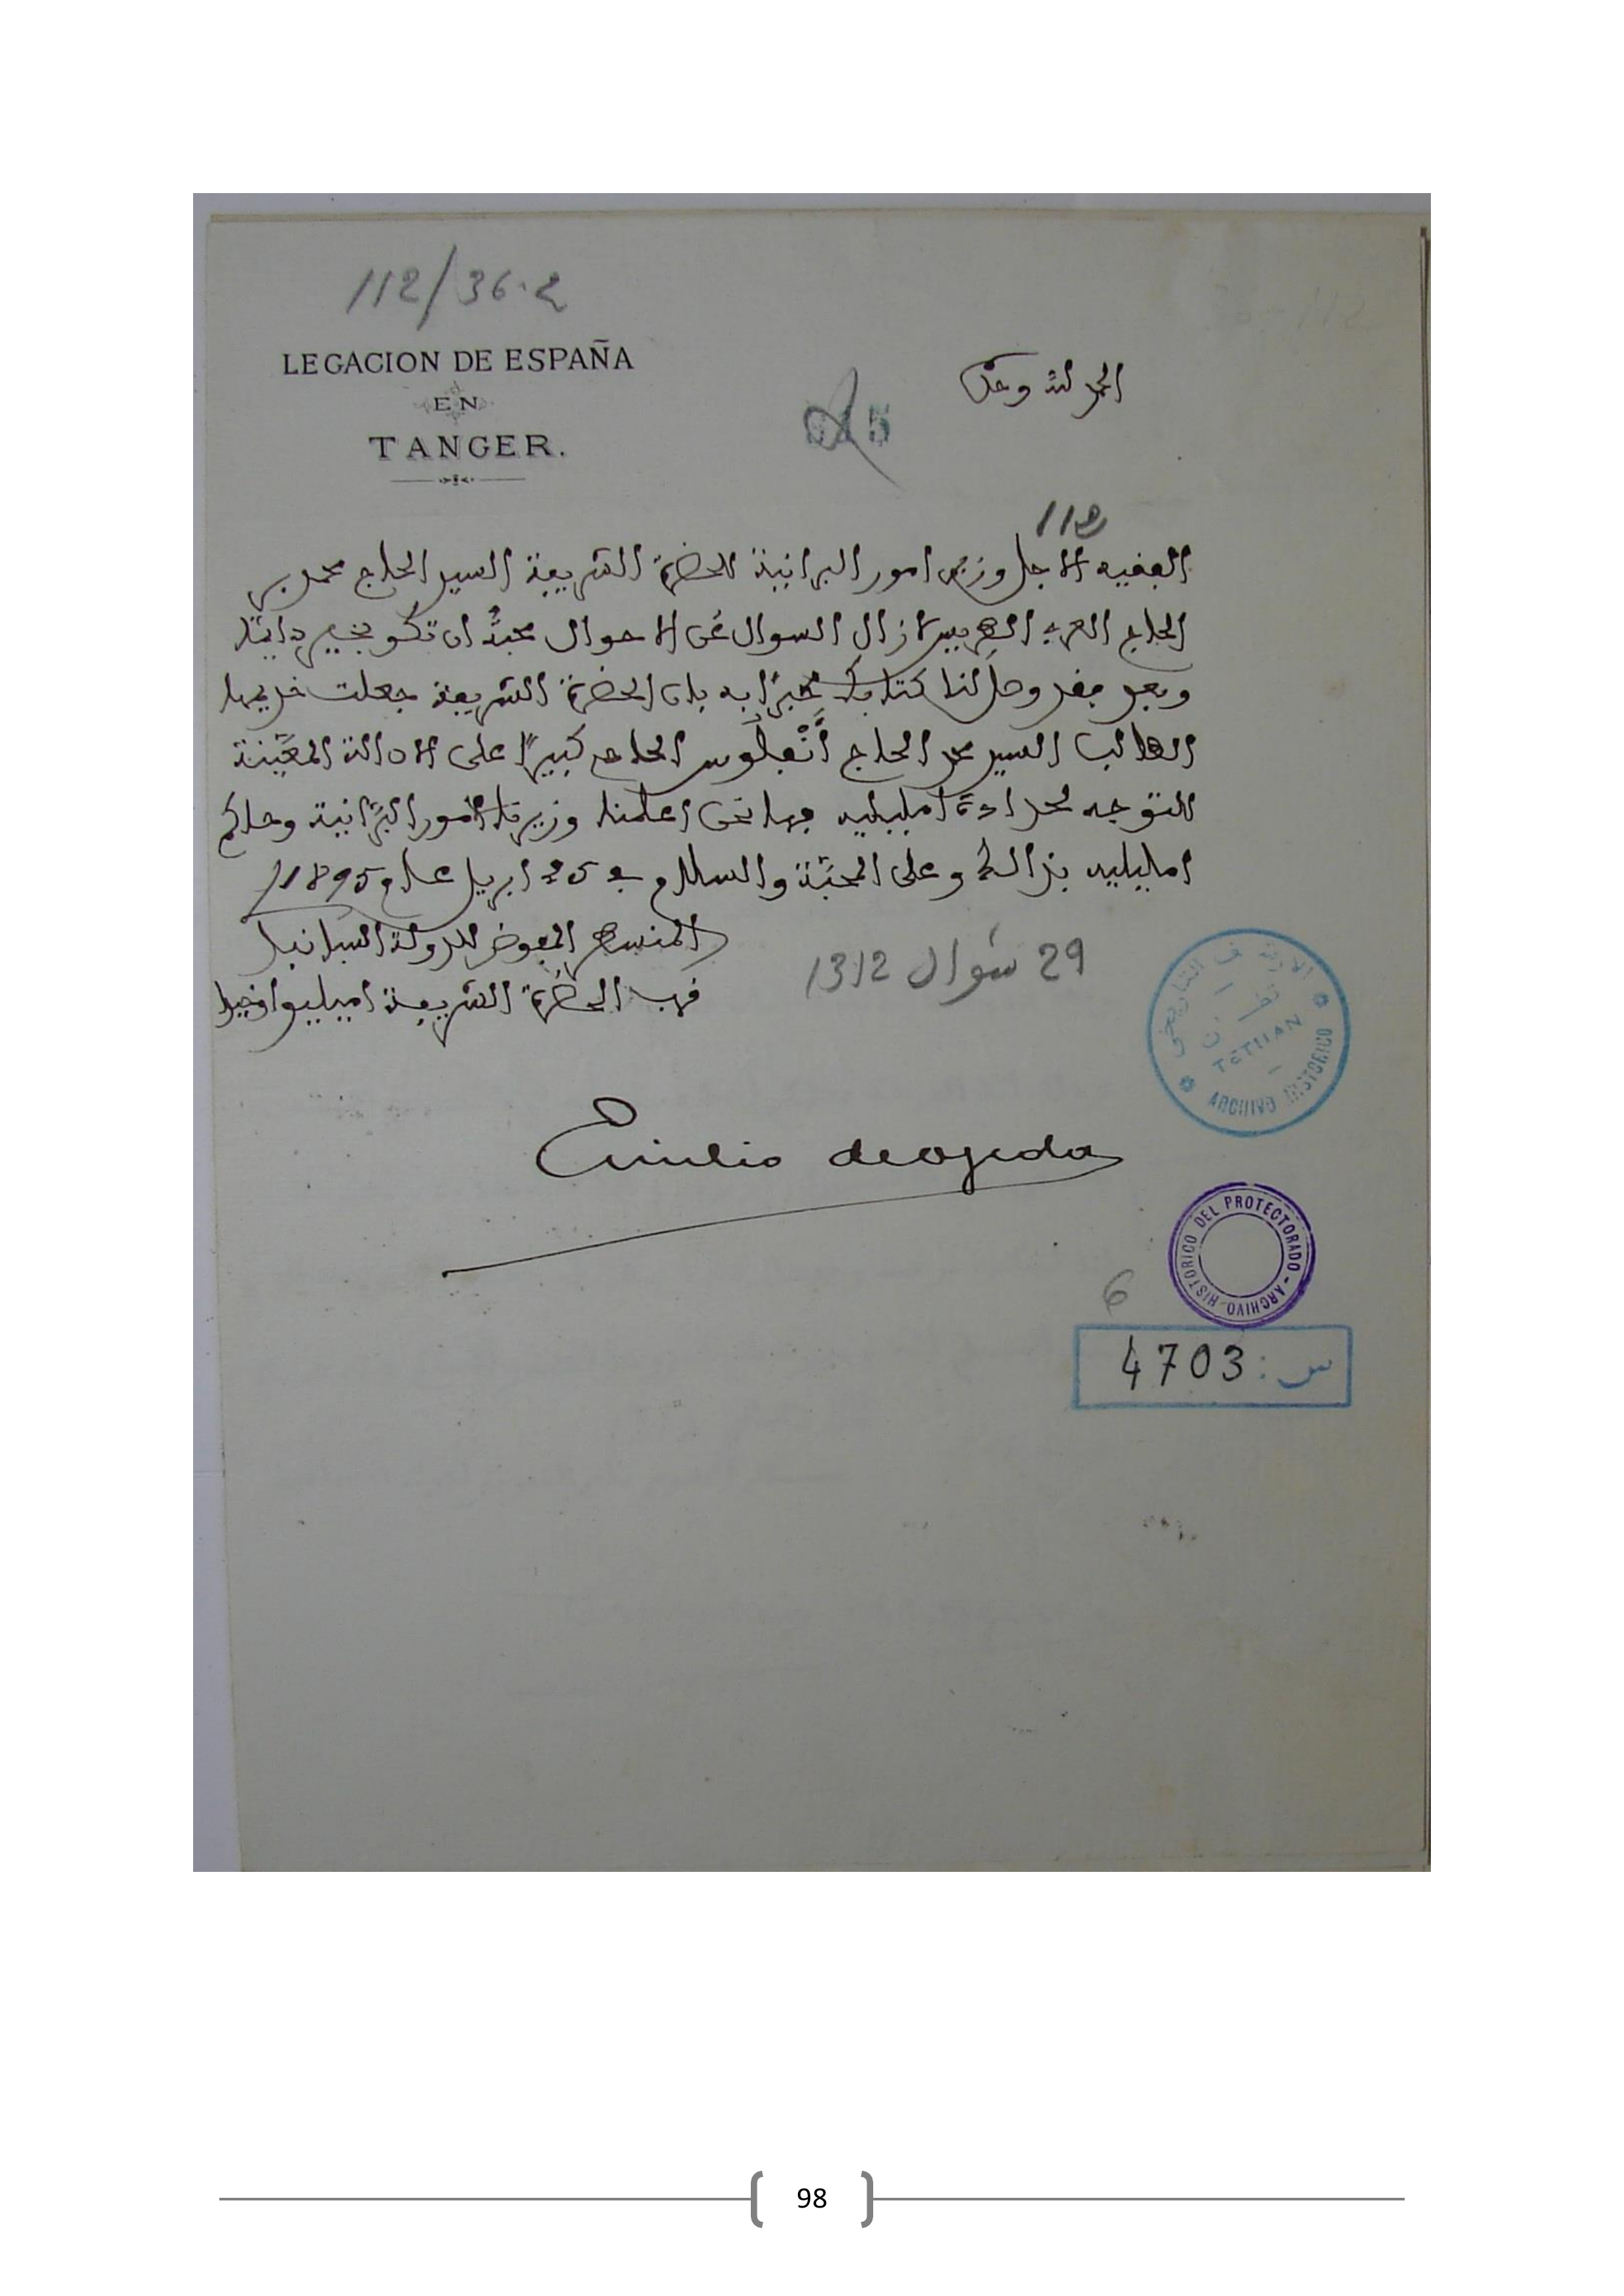 112/36.2
LEGACION DE ESPAÑA
EN
TANGER.
الحمد لله وحده
5
112
الفقيه الاجل وزير امور البرانية للحضرة الشريفة السيد الحاج محمد بن
الحاج العربي الطريس لا زال السوال عن الاحوال محبةً ان تكو بخير دايما
وبعد فقد وصل لنا كتابك مخبرًا به بان الحضرة الشريفة جعلت خديمها
الطالب السيد محمد الحاج أَنْفلُوس الحاحي كبيرًا على الادالة المعيّنة
للتوجه لحدادة امليلية فها نحن اعلمنا وزيرنا الامور البرّانية وحاكم
امليلية بذالك وعلى المحبّة والسلام في 25 ابريل عام 1895
المنسطر المفوض للدولة السبانيا
قرب الحضرة الشريفة اميليو اخيدا
29 شوال 1312
الارشيف التاريخي
تطوان
TETUAN
ARCHIVO HISTORICO
Emilio de Ojeda
ARCHIVO HISTORICO DEL PROTECTORADO
6
س: 4703
98